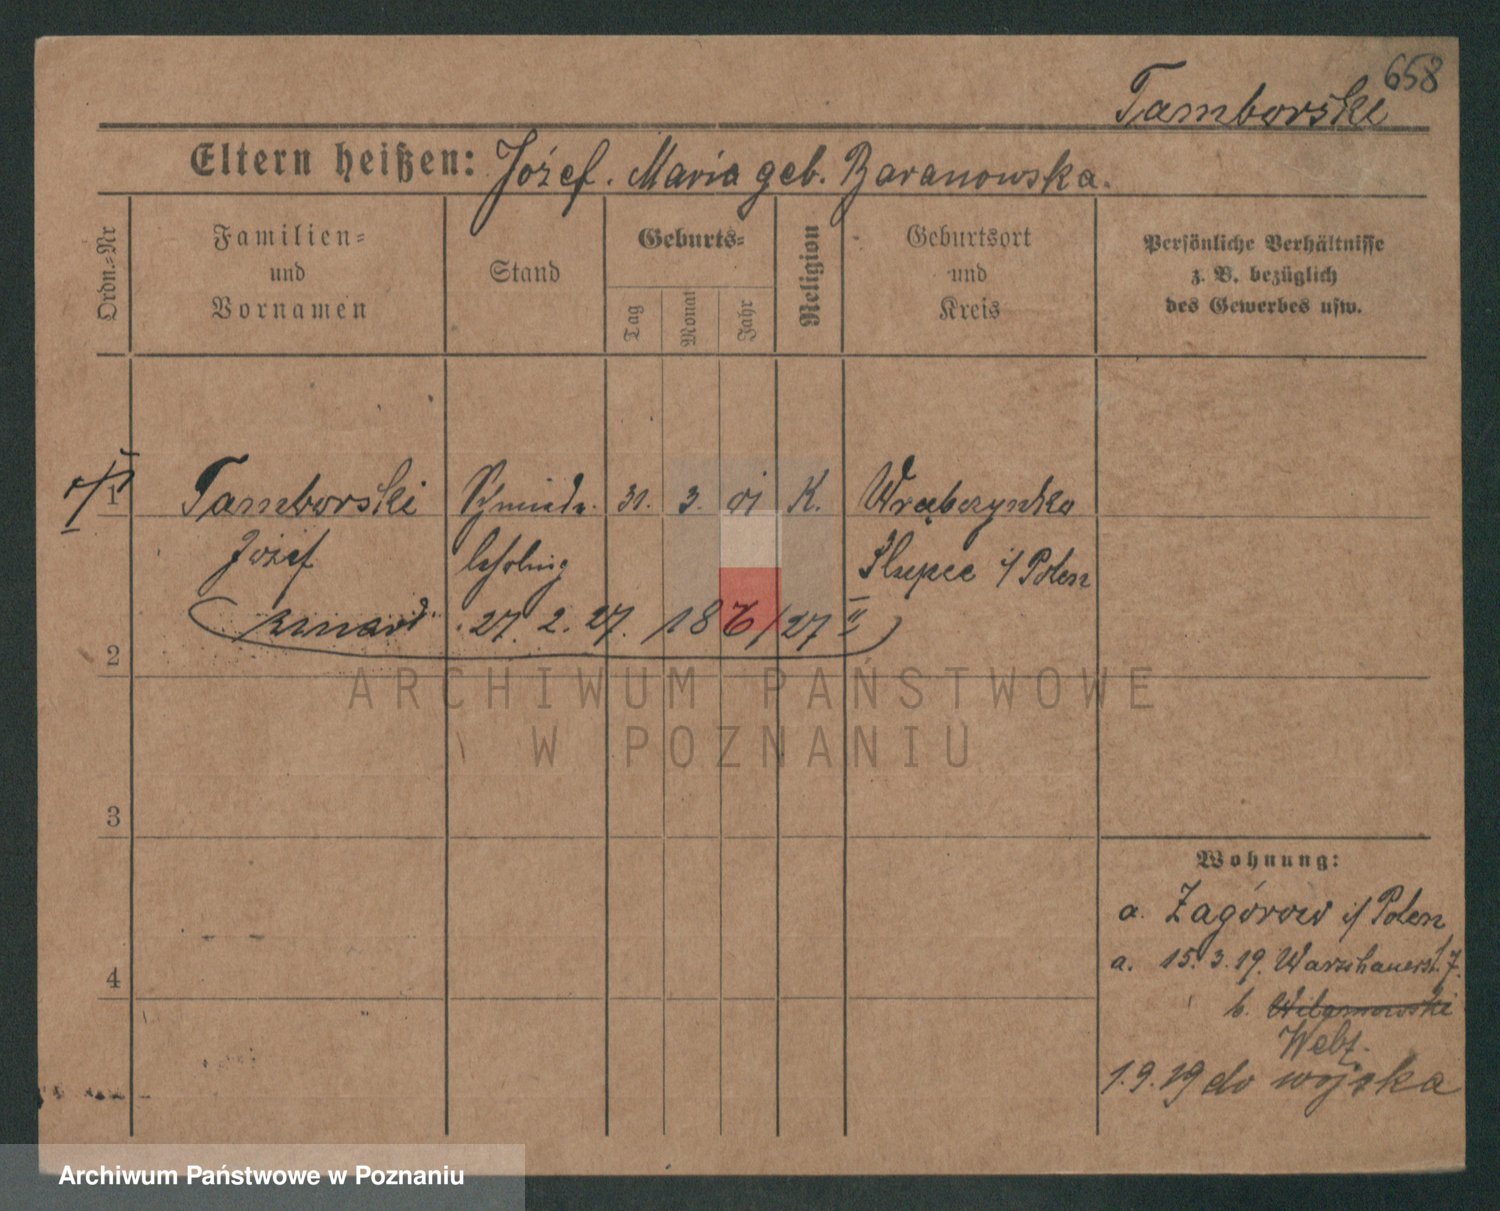 658
Tamborski
Eltern heißen: Józef. Maria geb. Baranowska.
Ordn.-Nr
Familien-
und
Vornamen
Stand
Geburts-
Tag
Monat
Jahr
Religion
Geburtsort
und
Kreis
Persönliche Verhältnisse
z. B. bezüglich
des Gewerbes usw.
1 Tamborski Schmiede. 31. 3. 01 K. Wrąbczynko
Józef lehrling Slupce i/ Polen
27. 2. 27. 186/27 II
2
ARCHIWUM PAŃSTWOWE
W POZNANIU
3
Wohnung:
a. Zagórow i/ Polen
a. 15.3.19. Warschauerst. 7.
4
b. Wilamowski
Webz.
1.9.19 do wojska
Archiwum Państwowe w Poznaniu